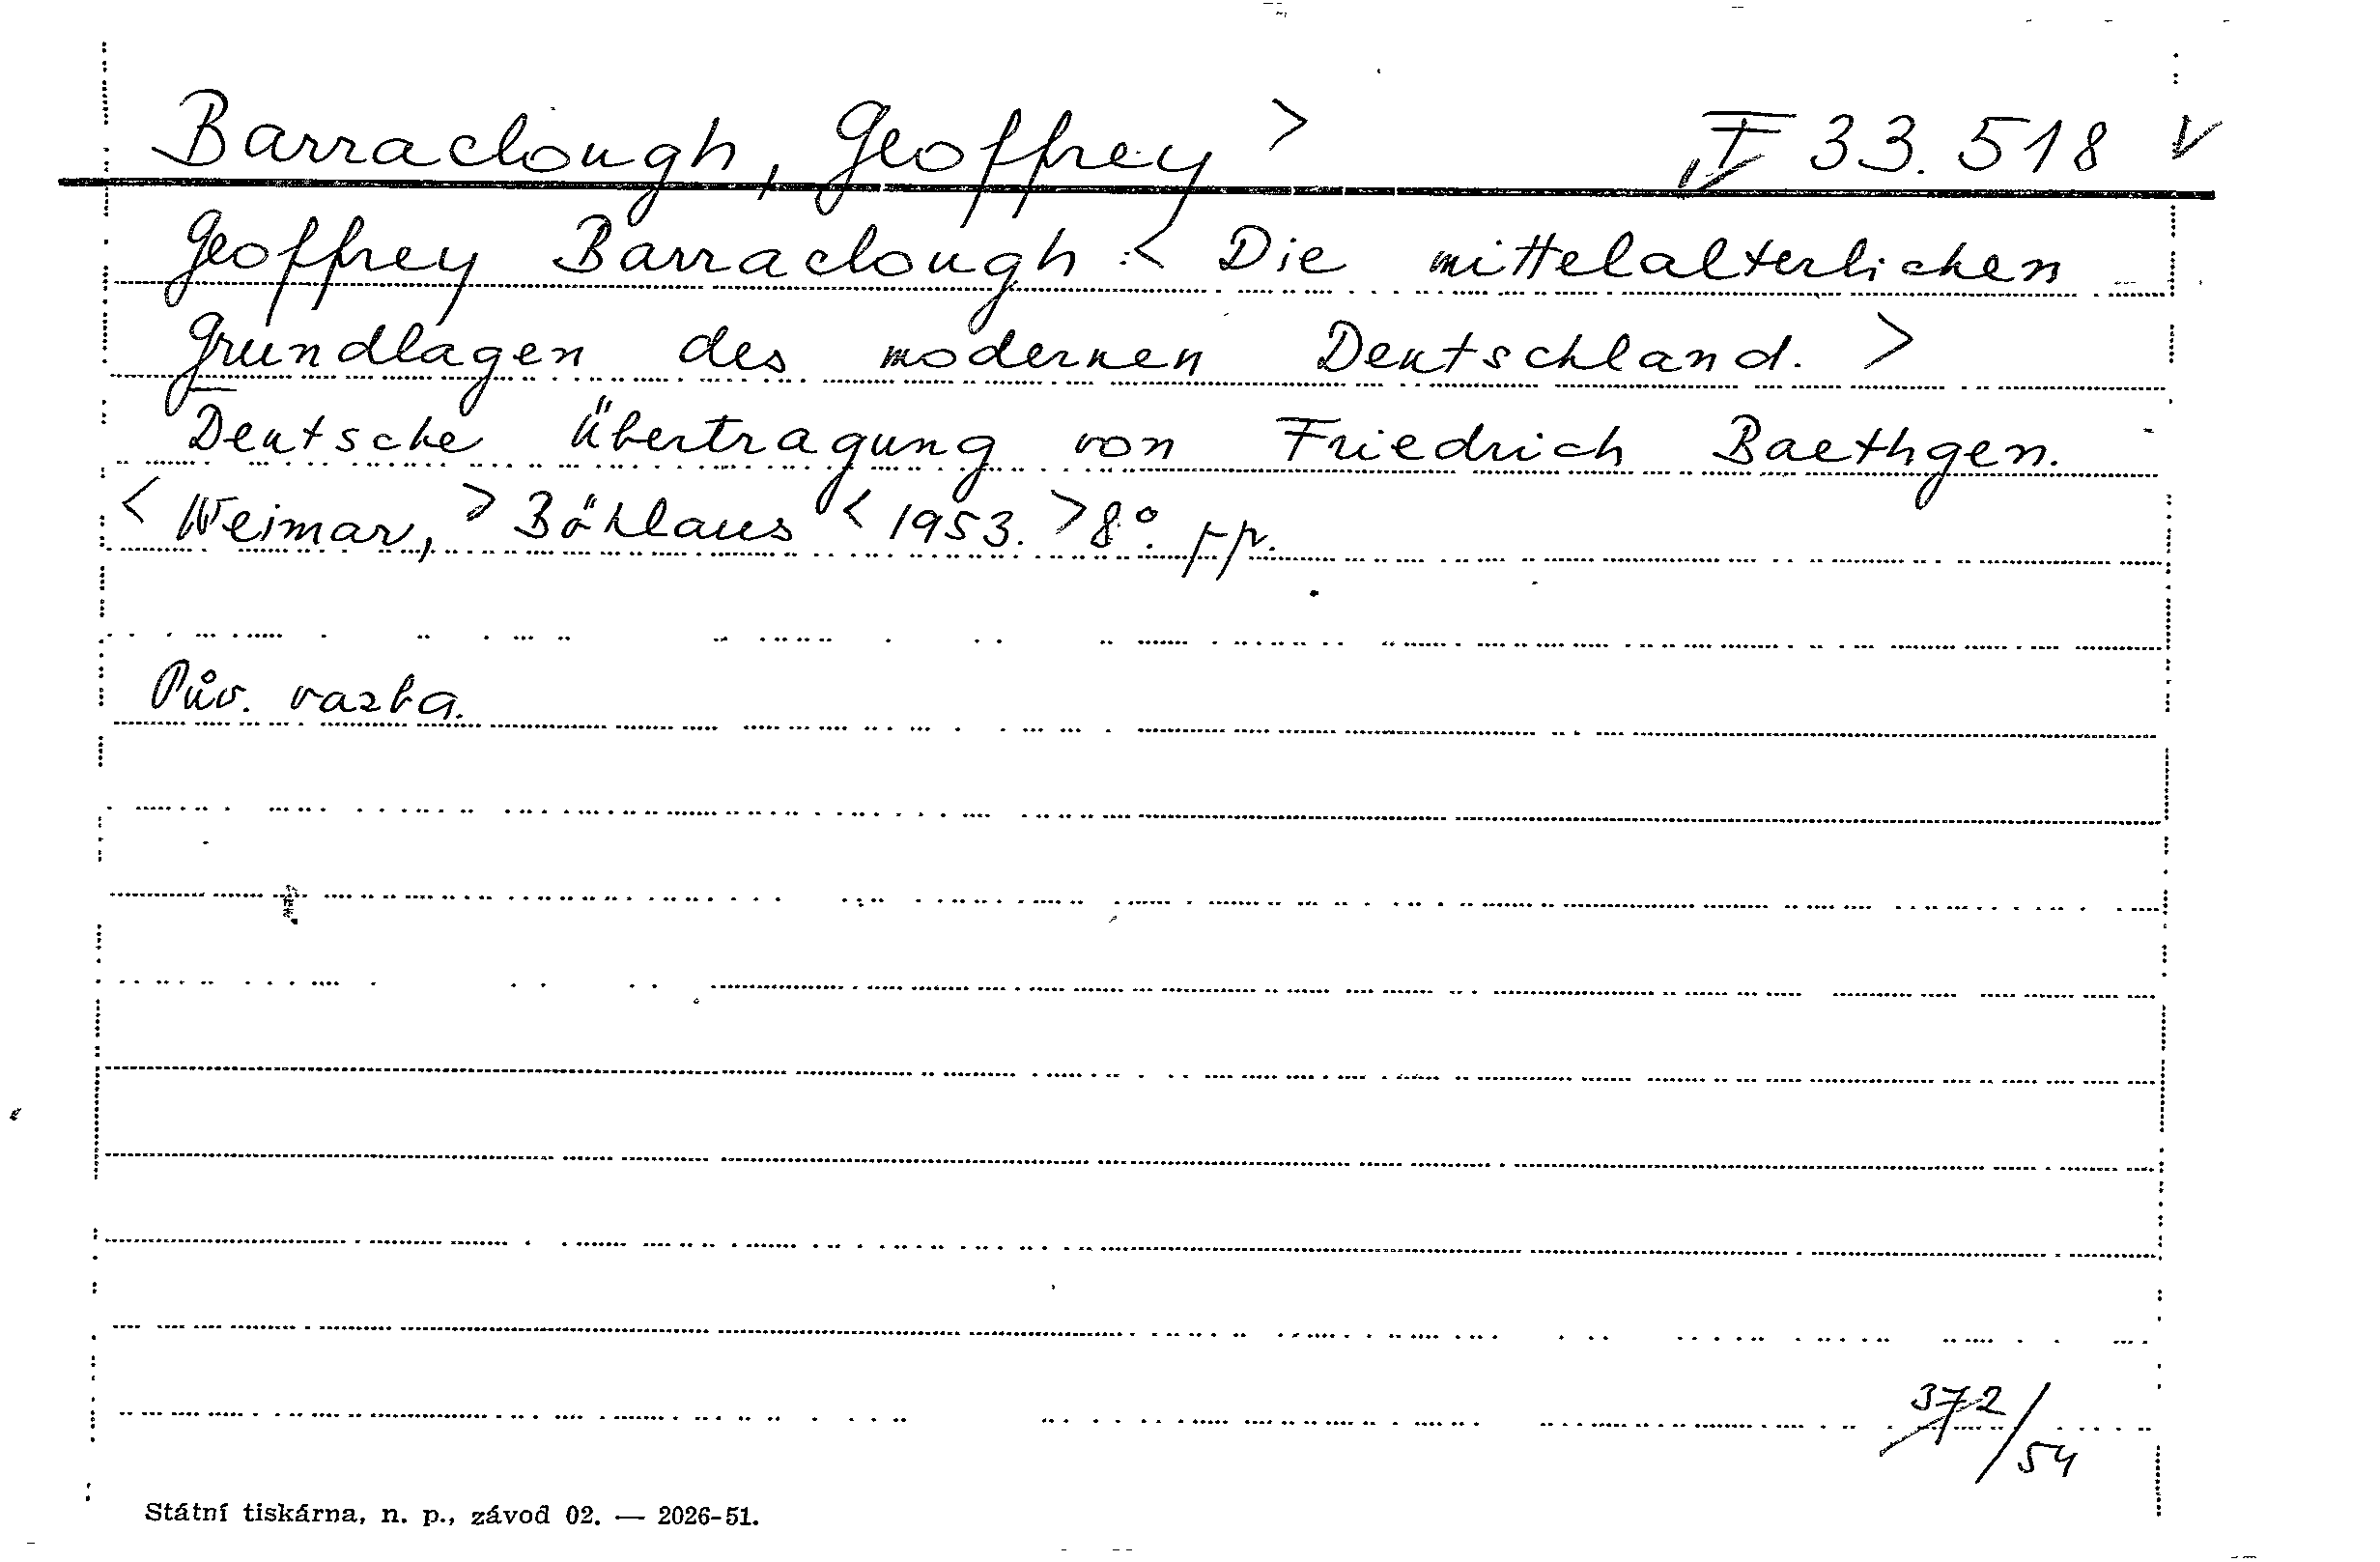 Barraclough, Geoffrey > I 33.518 V
Geoffrey Barraclough: < Die mittelalterlichen
Grundlagen des modernen Deutschland. >
Deutsche Übertragung von Friedrich Baethgen.
< Weimar, > Böhlaus < 1953. > 8°.
Pův. vazba.
372/54
Státní tiskárna, n. p., závod 02. — 2026-51.